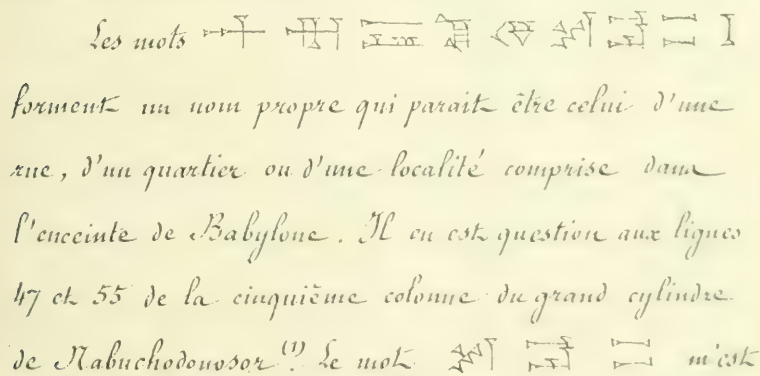 Les mots
forment un nom propre qui parait être celui d'une
rue, d'un quartier ou d'une localité comprise dans
l'enceinte de Babylone. Il en est question aux lignes
47 et 55 de la cinquième colonne du grand cylindre
de Nabuchodonosor (1). Le mot m'est